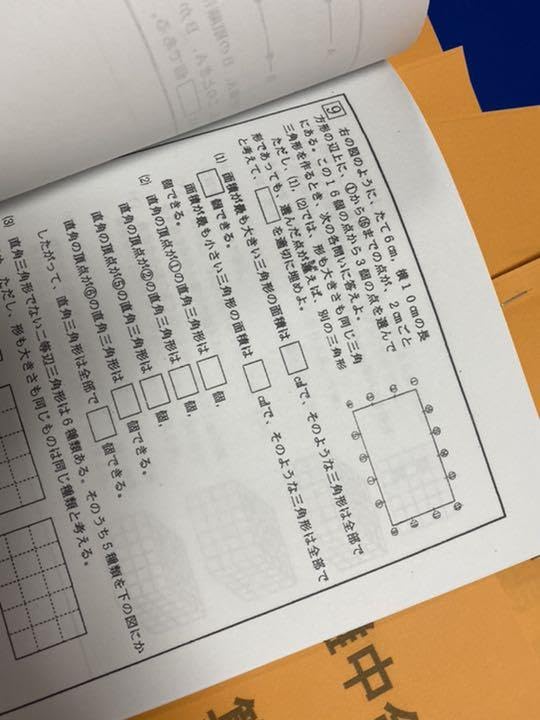 9
右の図のように、たて6cm、横10cmの長
方形の辺上に、①から⑯までの点が、2cmごと
にある。この16個の点から3個の点を選んで
三角形を作るとき、次の各問いに答えよ。
ただし、(1)、(2)では、形も大きさも同じ三角
形であっても、選んだ点が違えば、別の三角形
と考えて、□を適切に埋めよ。
(1) 面積が最も大きい三角形の面積は□㎠で、そのような三角形は全部で
□個できる。
面積が最も小さい三角形の面積は□㎠で、そのような三角形は全部で
個できる。
(2) 直角の頂点が①の直角三角形は□個、
直角の頂点が②の直角三角形は□個、
直角の頂点が⑤の直角三角形は□個、
直角の頂点が⑥の直角三角形は□個できる。
したがって、直角三角形は全部で□個できる。
(3) 直角三角形でない二等辺三角形は6種類ある。そのうち5種類を下の図にか
ただし、形も大きさも同じものは同じ種類と考える。
中